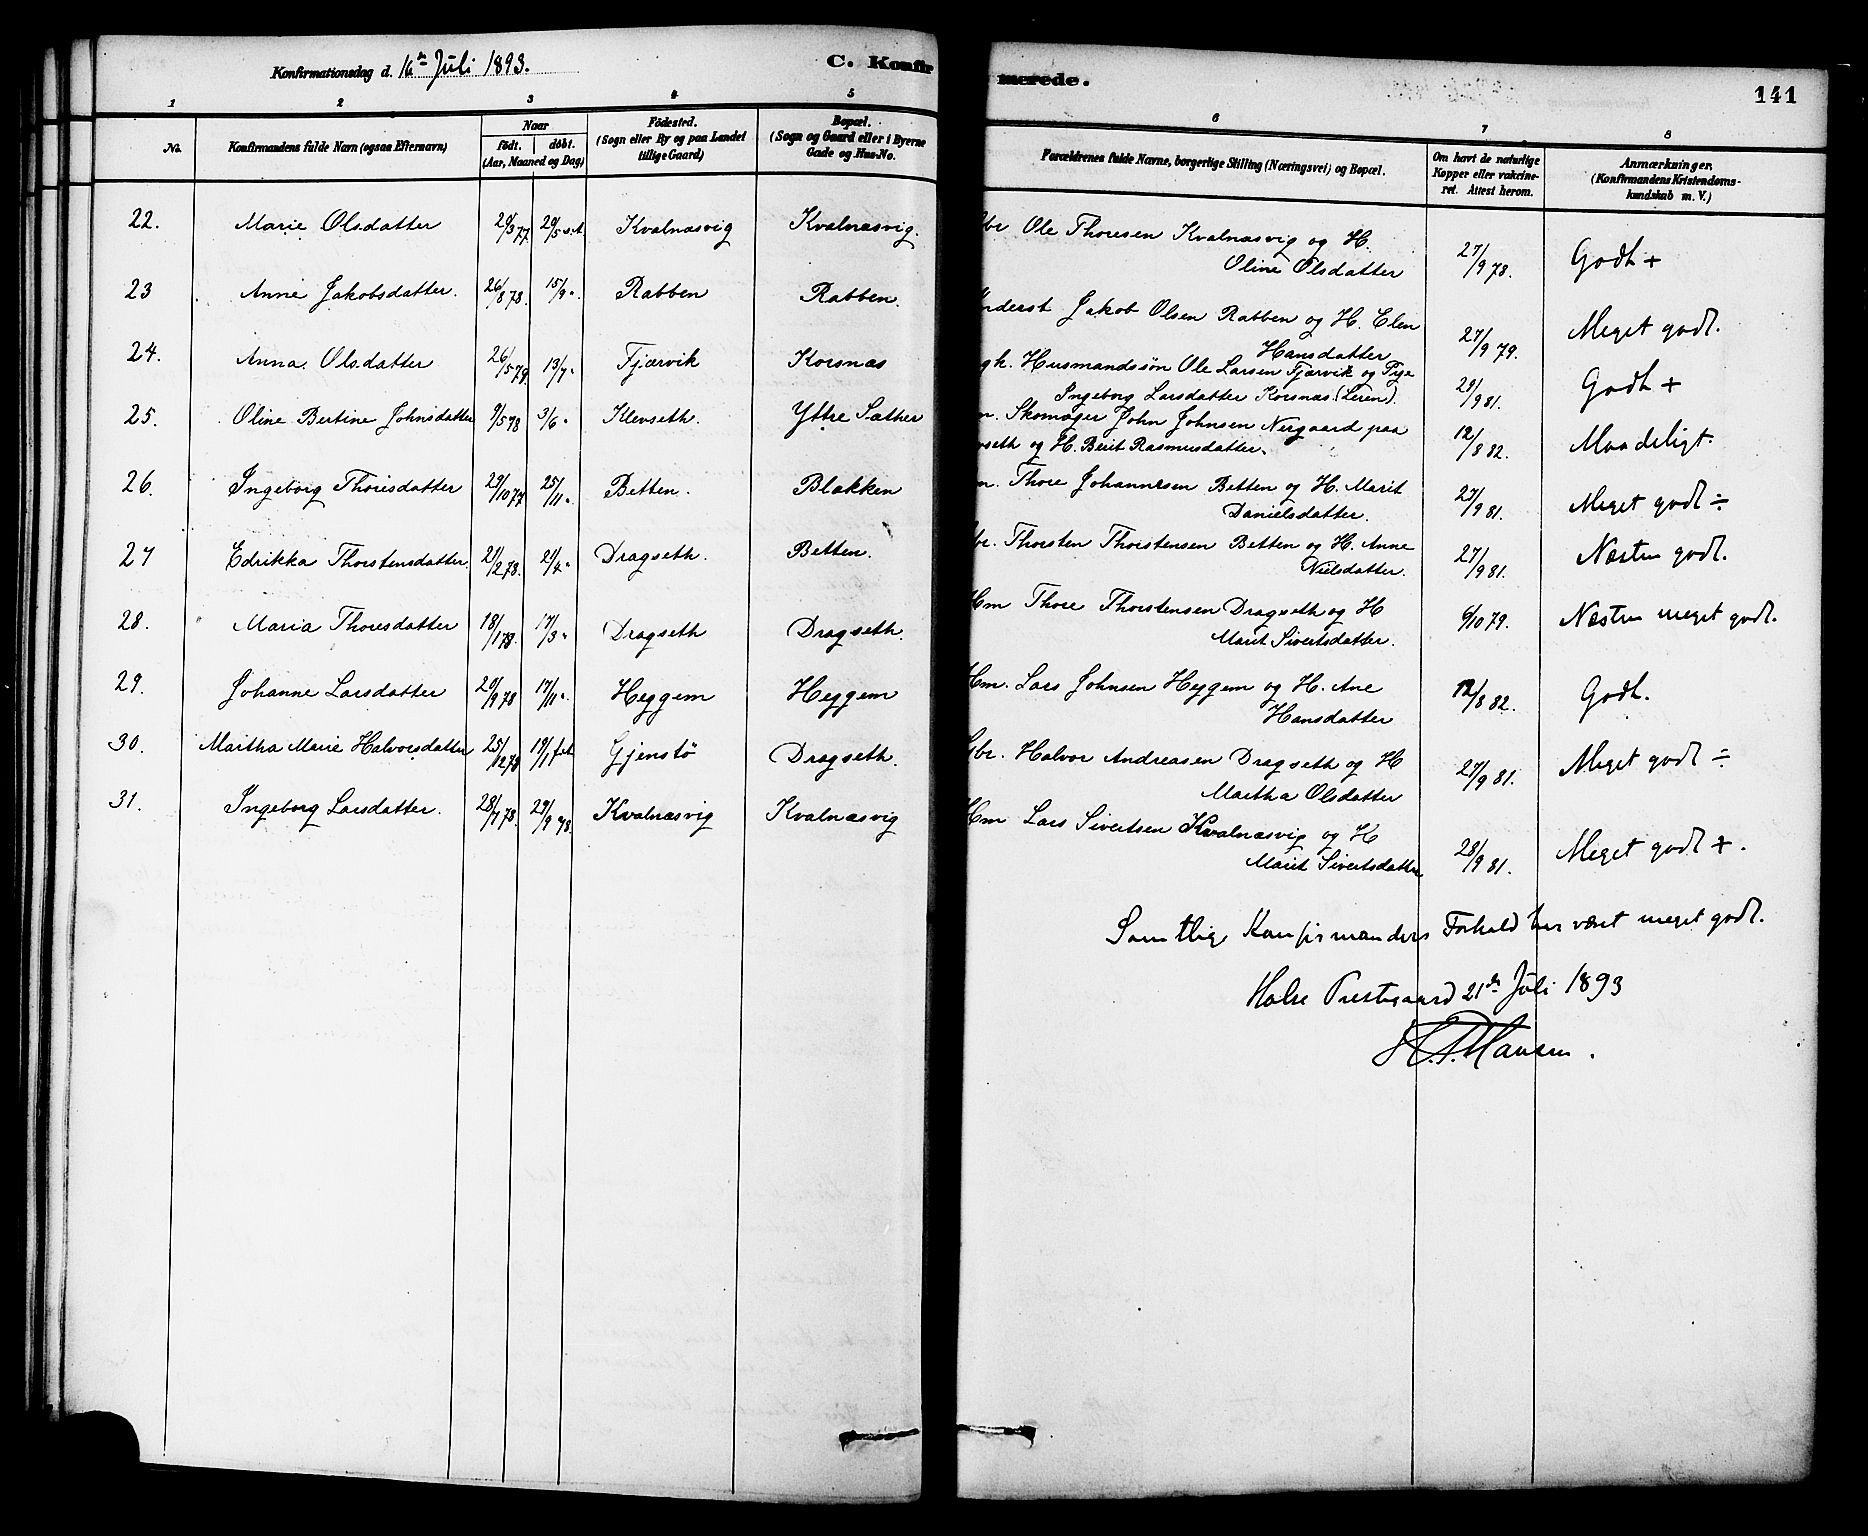 Konfirmationsdag d. 16de Juli 1893. C. Konfirmerede. 141
1 2 3 4 5 6 7 8
No. Konfirmandens fulde Navn (ogsaa Efternavn) Naar født. døbt. (Aar, Maaned og Dag) Fødested. (Sogn eller By og paa Landet tillige Gaard) Bopæl. (Sogn og Gaard eller i Byerne Gade og Hus-No. Forældrenes fulde Navne, borgerlige Stilling (Næringsvei) og Bopæl. Om havt de naturlige Kopper eller vakcineret. Attest herom. Anmærkninger. (Konfirmandens Kristendomskundskab m. V.)
22. Marie Olsdatter 20/3 77 20/5 s.A. Kvalnæsvig Kvalnæsvig. Gbr Ole Thoresen Kvalnæsvig og H. 27/9 78. Godt +
Oline Olsdatter
23 Anne Jakobsdatter. 26/8 78. 15/9 " Rabben Rabben. Inderst Jakob Olsen Rabben og H. Elen 27/9 79. Meget godt.
Hansdatter
24. Anna Olsdatter 26/5 79 13/7 " Fjærvik Korsnæs Ugk. Husmandssøn Ole Larsen Fjærvik og Pige 29/9 81. Godt +
Ingeborg Larsdatter Korsnæs (Leren).
25. Oline Bertine Johnsdatter 9/5 78 3/6 " Klevseth. Yttre Sæther m. Skomager John Johnsen Nergaard paa 12/8 82. Maadeligt.
Klevseth og H. Berit Rasmusdatter.
26. Ingeborg Thoresdatter 29/10 77 25/11 " Betten. Blakken m. Thore Johannesen Betten og H. Marit 27/9 81. Meget godt ÷
Danielsdatter.
27 Edrikka Thorstensdatter 21/2 78. 21/4 " Dragseth. Betten. Gbr. Thorsten Thorstensen Betten og H. Anne 27/9 81. Næsten godt.
Nielsdatter.
28. Maria Thoresdatter 18/1 78. 17/3 " Dragseth Dragseth. Hm Thore Thorstensen Dragseth og H 6/10 79. Næsten meget godt.
Marit Sivertsdatter.
29. Johanne Larsdatter 20/9 78 17/11 " Heggem Heggem Hm. Lars Johnsen Heggem og H. Ane 12/8 82. Godt.
Hansdatter
30. Martha Marie Halvorsdatter 25/12 78 19/1 Gjenstø Dragseth. Gbr. Halvor Andreasen Dragseth og H 27/9 81. Meget godt ÷
Martha Olsdatter
31. Ingeborg Larsdatter. 28/7 78. 29/9 78. Kvalnæsvig Kvalnæsvig Hm Lars Sivertsen Kvalnæsvig og H 28/9 81. Meget godt +.
Marit Sivertsdatter
Samtlige Konfirmanders Forhold har været meget godt.
Halse Prestegaard 21de Juli 1893
Hansen.